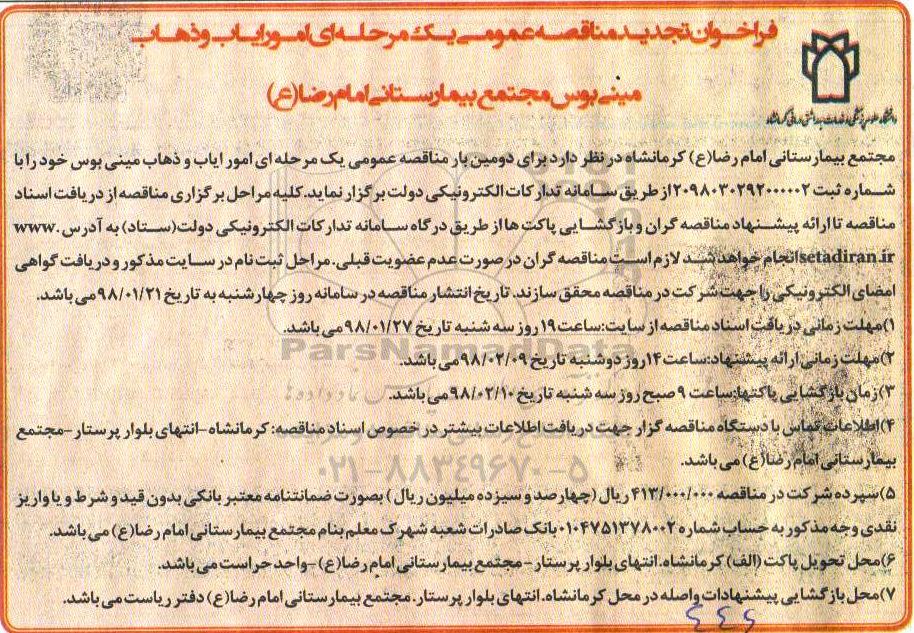 فراخوان تجدید مناقصه عمومی یک مرحله ای امور ایاب و ذهاب
مینی بوس مجتمع بیمارستانی امام رضا(ع)
مجتمع بیمارستانی امام رضا(ع) کرمانشاه در نظر دارد برای دومین بار مناقصه عمومی یک مرحله ای امور ایاب و ذهاب مینی بوس خود را با
شماره ثبت ۲۰۹۸۰۳۰۲۹۲۰۰۰۰۰۲ از طریق سامانه تدارکات الکترونیکی دولت برگزار نماید. کلیه مراحل برگزاری مناقصه از دریافت اسناد
مناقصه تا ارائه پیشنهاد مناقصه گران و بازگشایی پاکت ها از طریق درگاه سامانه تدارکات الکترونیکی دولت(ستاد) به آدرس www.
setadiran.ir انجام خواهد شد لازم است مناقصه گران در صورت عدم عضویت قبلی. مراحل ثبت نام در سایت مذکور و دریافت گواهی
امضای الکترونیکی را جهت شرکت در مناقصه محقق سازند. تاریخ انتشار مناقصه در سامانه روز چهارشنبه به تاریخ ۹۸/۰۱/۲۱ می باشد.
۱)مهلت زمانی دریافت اسناد مناقصه از سایت:ساعت ۱۹ روز سه شنبه تاریخ ۹۸/۰۱/۲۷ می باشد.
۲)مهلت زمانی ارائه پیشنهاد:ساعت ۱۴ روز دوشنبه تاریخ ۹۸/۰۲/۰۹ می باشد.
ParsNamadData
۳)زمان بازگشایی پاکتها:ساعت ۹ صبح روز سه شنبه تاریخ ۹۸/۰۲/۱۰ می باشد.
۴)اطلاعات تماس با دستگاه مناقصه گزار جهت دریافت اطلاعات بیشتر در خصوص اسناد مناقصه: کرمانشاه-انتهای بلوار پرستار-مجتمع
بیمارستانی امام رضا(ع) می باشد.
۰۲۱-۸۸۳۴۹۶۷۰-۵
۵)سپرده شرکت در مناقصه ۴۱۳/۰۰۰/۰۰۰ ریال (چهارصد و سیزده میلیون ریال ) بصورت ضمانتنامه معتبر بانکی بدون قید و شرط و یا واریز
نقدی وجه مذکور به حساب شماره ۰۱۰۴۷۵۱۳۷۸۰۰۲ بانک صادرات شعبه شهرک معلم بنام مجتمع بیمارستانی امام رضا(ع) می باشد.
۶)محل تحویل پاکت (الف) کرمانشاه. انتهای بلوار پرستار-مجتمع بیمارستانی امام رضا(ع)-واحد حراست می باشد.
۷)محل بازگشایی پیشنهادات واصله در محل کرمانشاه. انتهای بلوار پرستار. مجتمع بیمارستانی امام رضا(ع) دفتر ریاست می باشد.